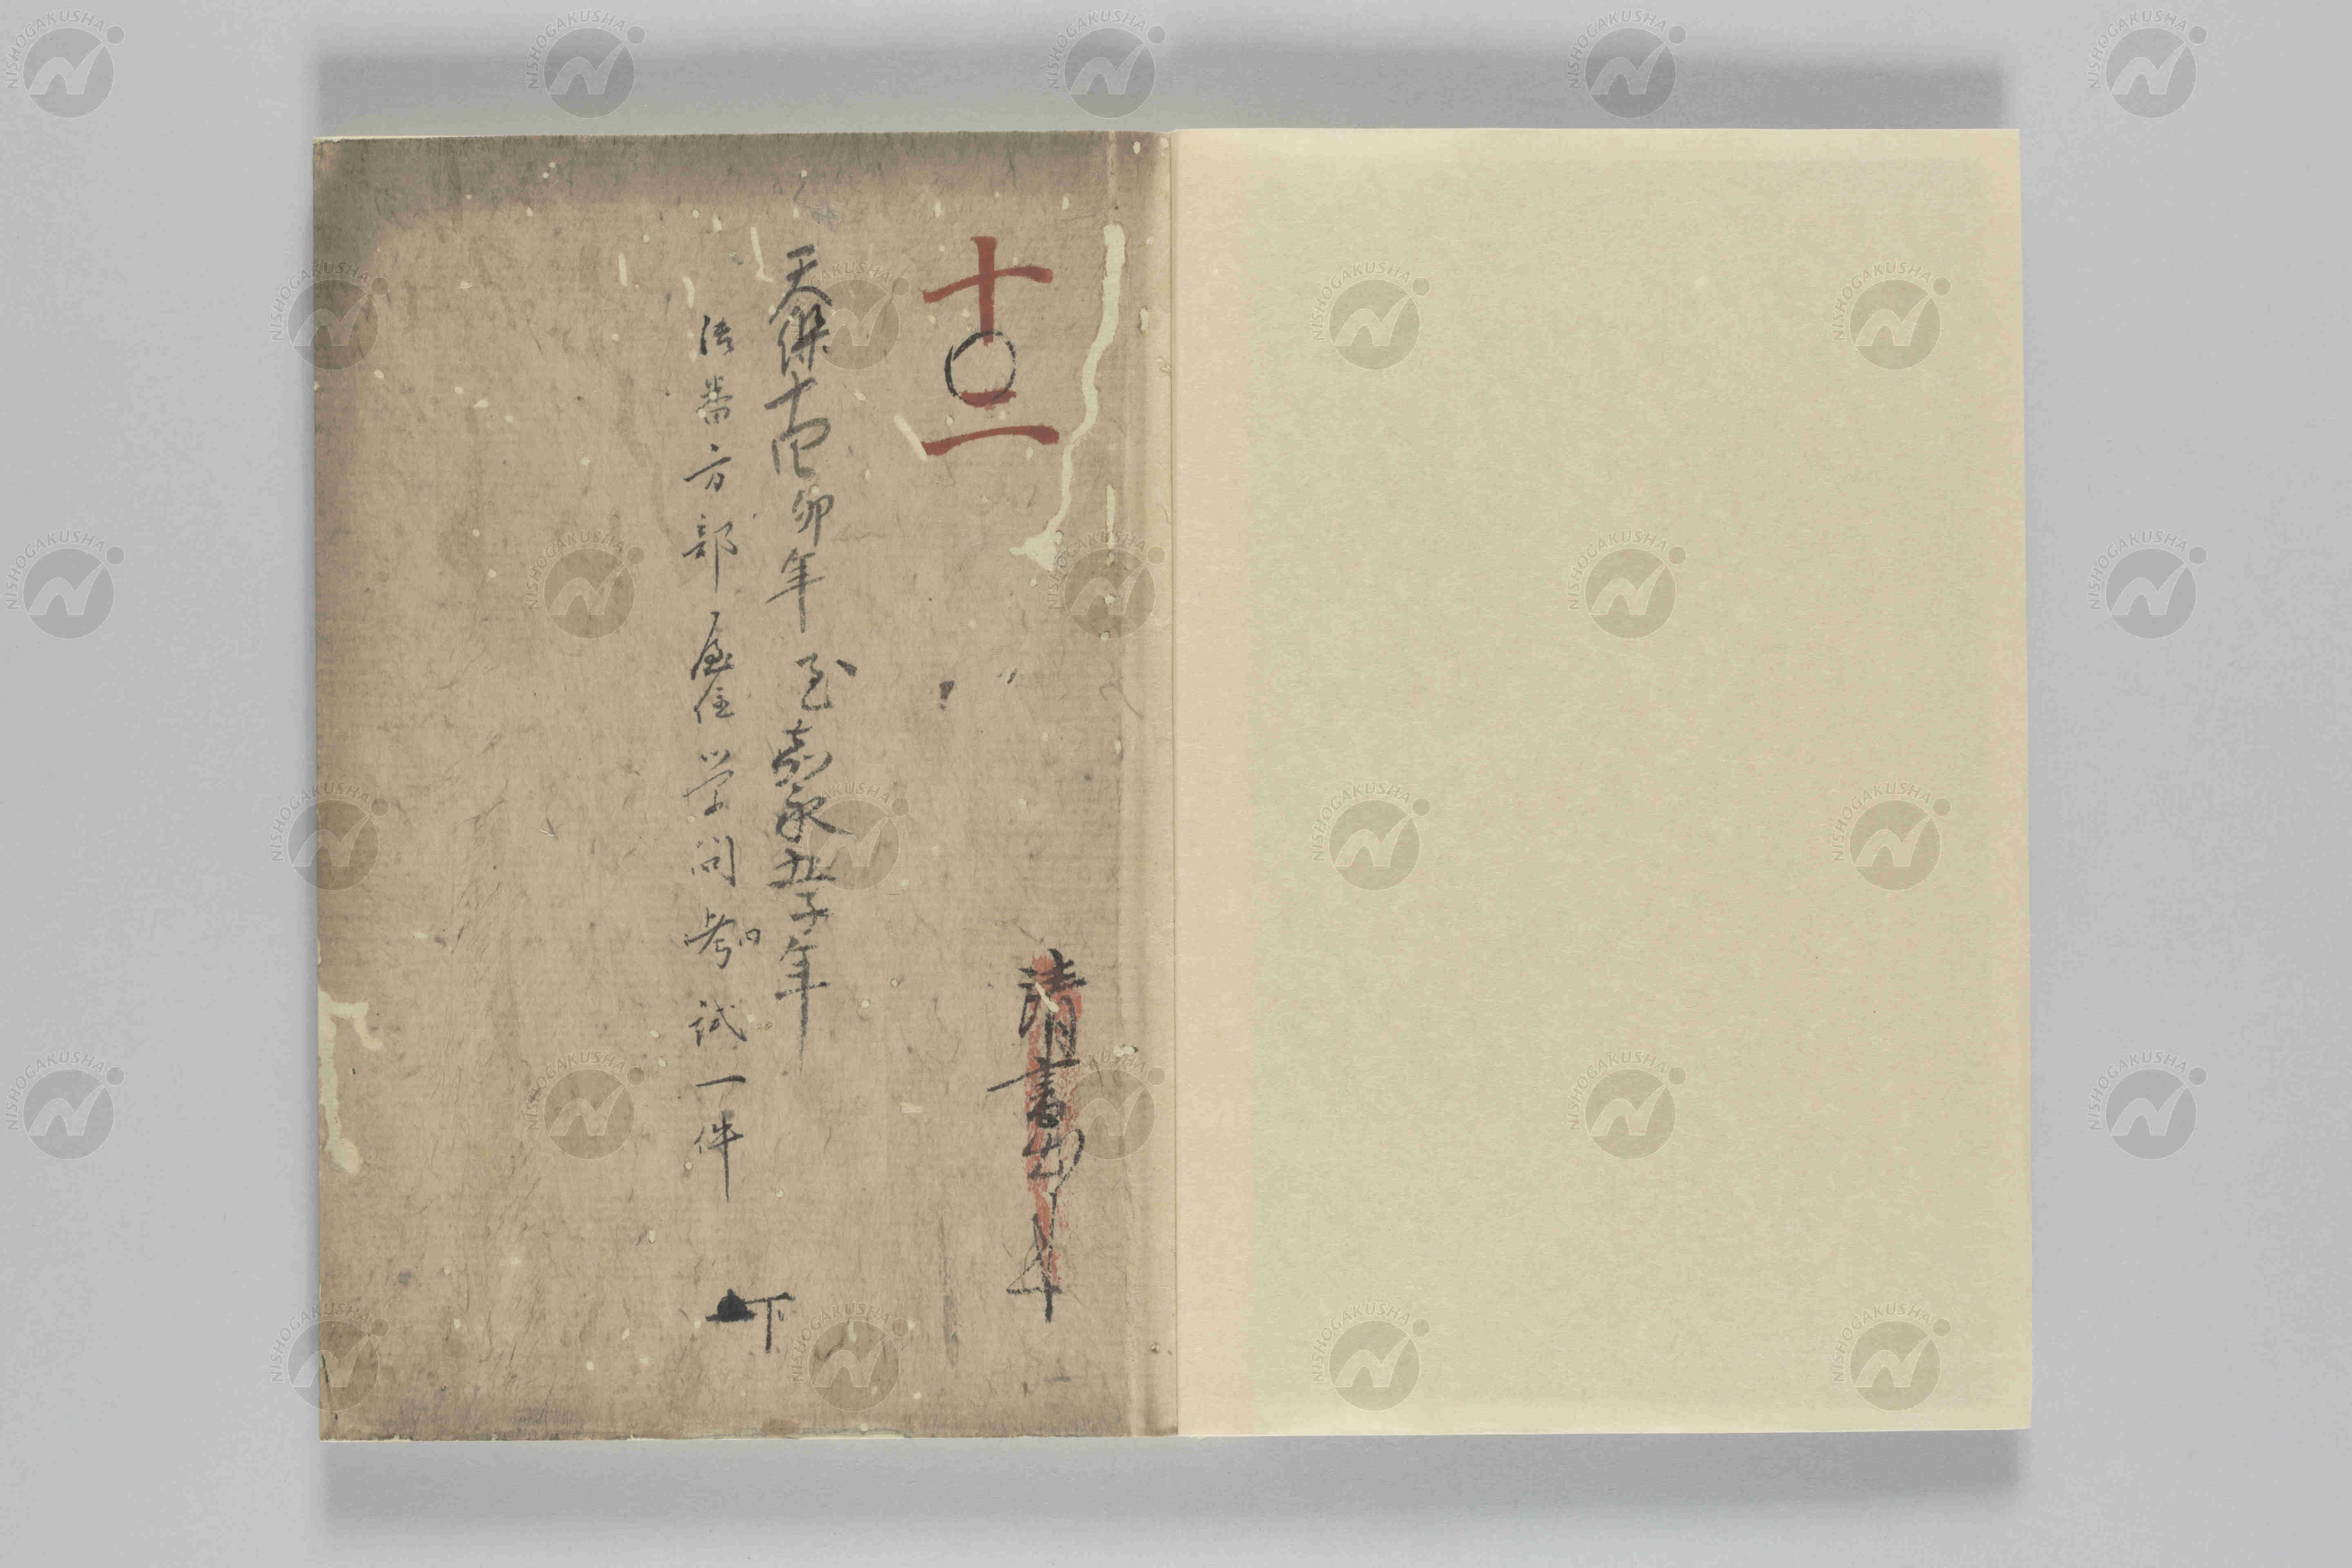 十二
○
清書出本
天保十四卯年 至嘉永五子年
諸番方部屋住学問考試一件
下
NISHOGAKUSHA